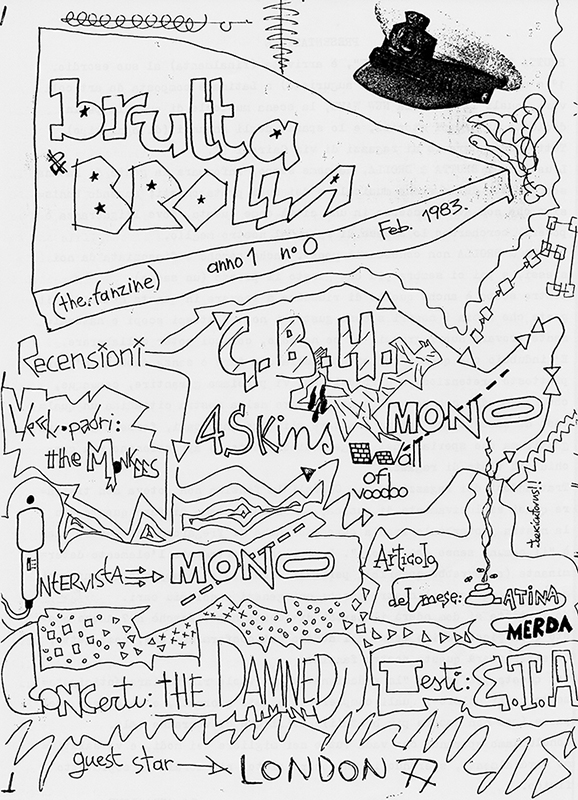 brutta
BROLLA
anno 1 n° 0 Feb. 1983.
(the: fanzine)
Recensioni
G.B.H.
4Skins
MONO
Wall
of
VOODOO
padri:
the MONKEES
INTERVISTA
MONO
ARTICOLO
del mese: LATINA
MERDA
CONCERTI: THE DAMNED
Testi: E.T.A
guest star LONDON 77